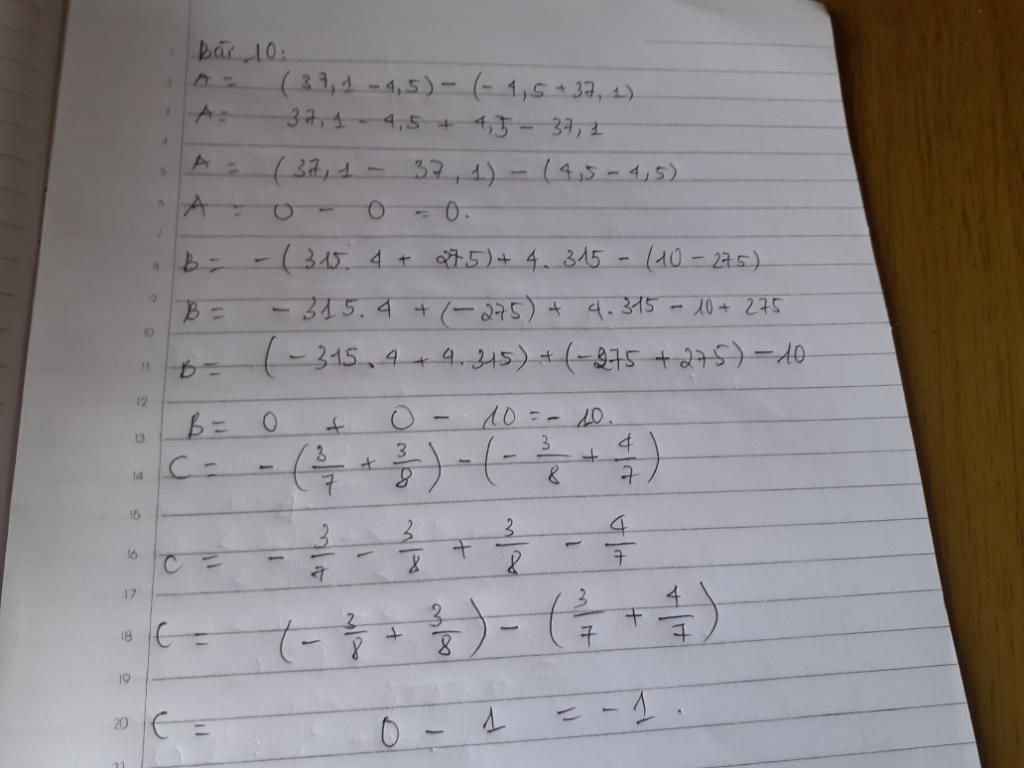 Bài 10:
A = (37,1 - 4,5) - (- 4,5 + 37,1)
A = 37,1 - 4,5 + 4,5 - 37,1
A = (37,1 - 37,1) - (4,5 - 4,5)
A = 0 - 0 = 0.
B = - (315. 4 + 275) + 4. 315 - (10 - 275)
B = - 315. 4 + (- 275) + 4. 315 - 10 + 275
B = (- 315. 4 + 4. 315) + (- 275 + 275) - 10
B = 0 + 0 - 10 = - 10.
C = - (3/7 + 3/8) - (- 3/8 + 4/7)
C = - 3/7 - 3/8 + 3/8 - 4/7
C = (- 3/8 + 3/8) - (3/7 + 4/7)
C = 0 - 1 = - 1.